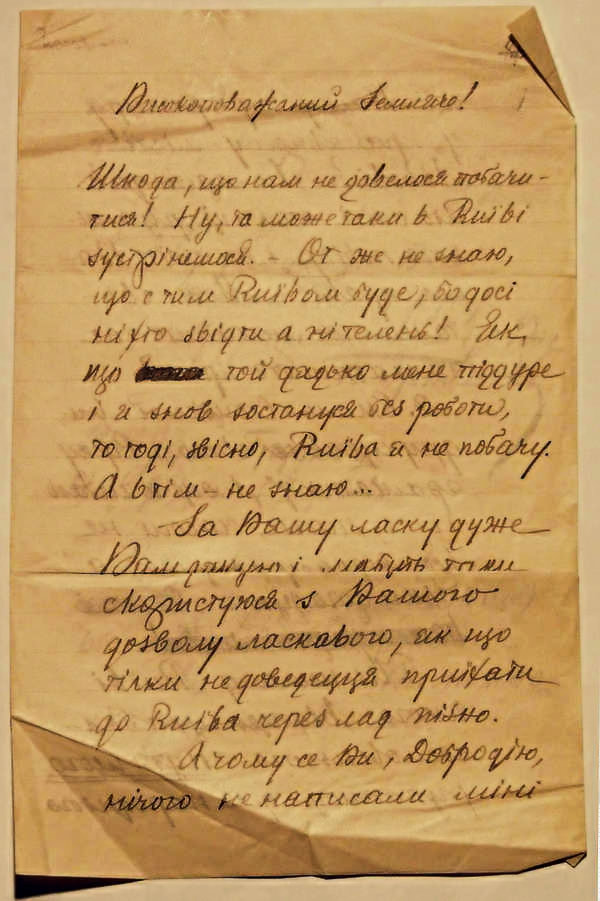 Високоповажаний Земляче!
Шкода, що нам не довелося побачи-
тися! Ну, та може таки в Київі
зустрінемося. – От же не знаю,
що с тим Київом буде, бо досі
ніхто звідти а ні телень! Як
що той дядько мене піддуре
і я знов зостануся без роботи,
то тоді, звісно, Київа я не побачу.
А втім – не знаю...
За Вашу ласку дуже
Вам дякую і мабуть таки
скористуюся з Вашого
дозволу ласкавого, як що
тілки не доведецця приїхати
до Київа через лад пізно.
А чому се Ви, Добродію,
нічого не написали міні